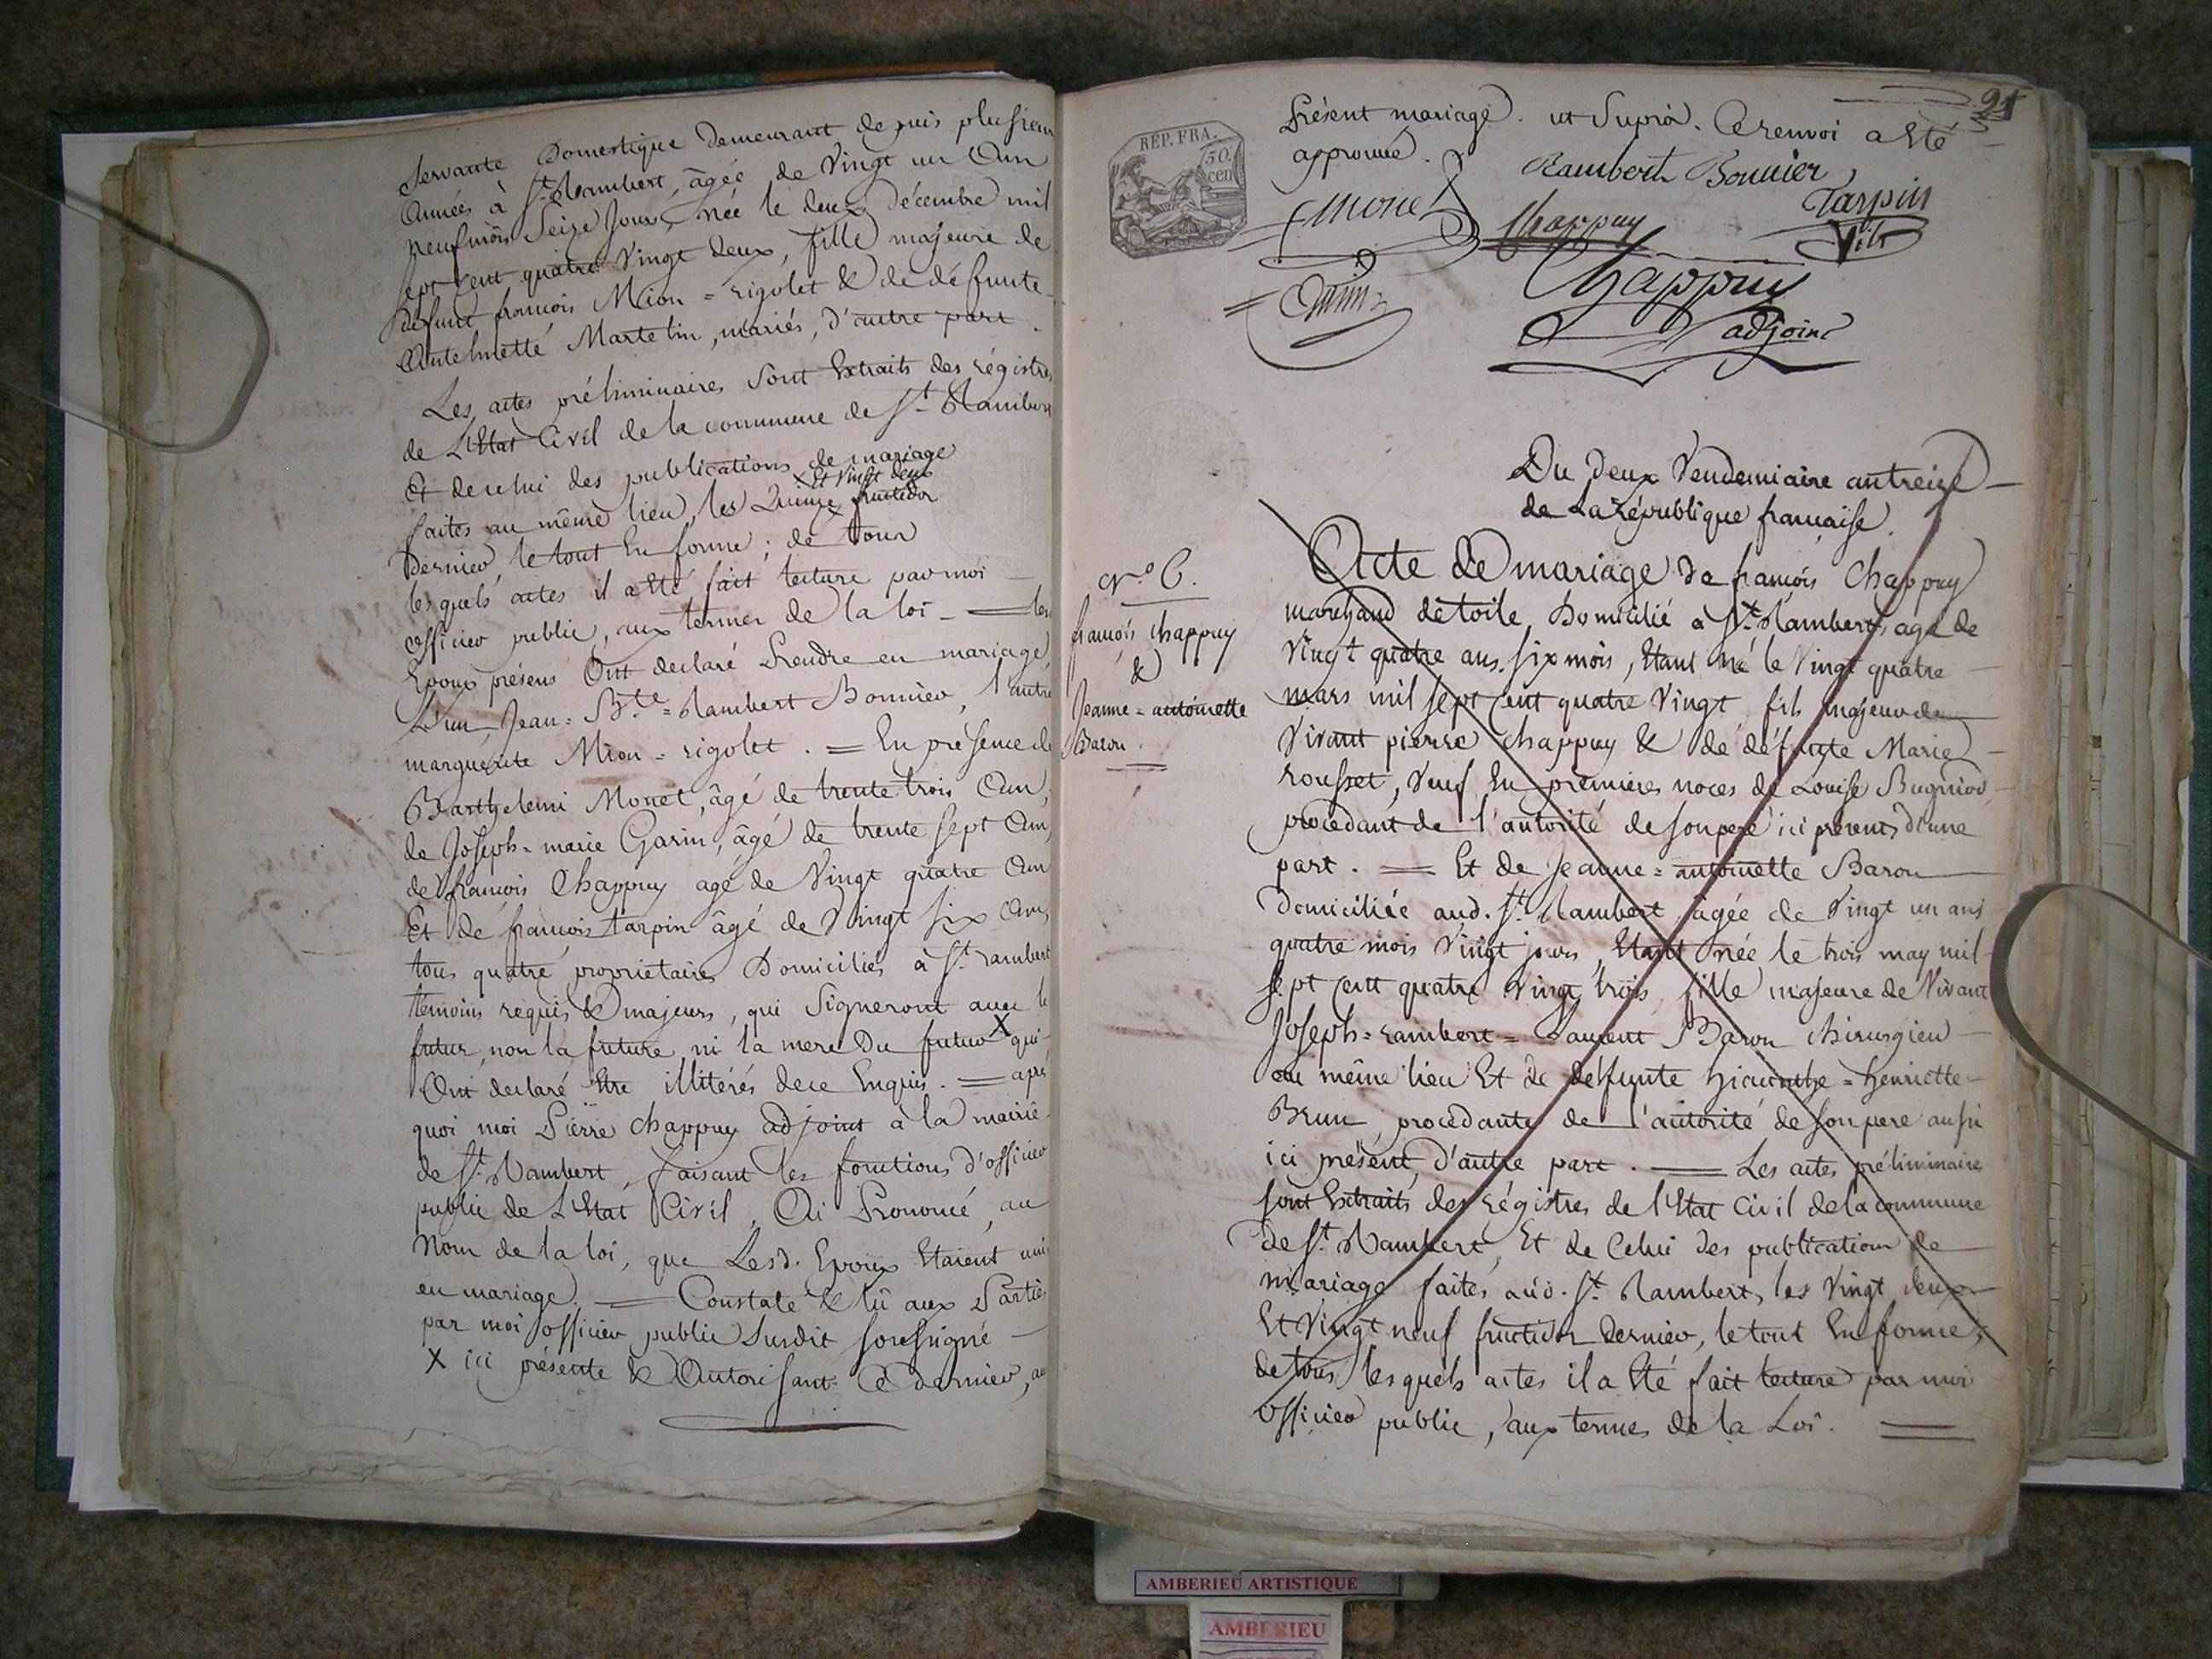 Servante Domestique Demeurant depuis plusieurs
Années à St. Rambert, âgée de Vingt un Ans
neuf mois Seize Jours, née le deux décembre mil
sept cent quatre Vingt deux, fille majeure de
défunt françois Mion = rigolet & de défunte
Antelmette Martelin, mariés, d'autre part.
Les actes préliminaires sont Extraits des régistres
de L'Etat Civil de la commune de St. Rambert
Et de celui des publications de mariage
x Et Vingt deux
faites au même lieu, les Quinze x fructidor
Dernier, le tout En forme; de tous
lesquels actes il a Eté fait lecture par moi
officier public, aux termes de la loi — les
Epoux présens Ont déclaré Prendre en mariage,
L'un, Jean = Bte = Rambert Bonnier, l'autre
marguerite Mion = rigolet. = En présence de
Barthelemi Monet, âgé de trente trois Ans,
de Joseph = marie Garin, âgé de trente sept Ans,
de françois Chappuy agé de Vingt quatre Ans
Et de françois tarpin âgé de Vingt six Ans,
tous quatre propriétaires Domiciliés à St. rambert
témoins requis & majeurs, qui Signeront avec le
futur, non la future, ni la mere Du futur X qui
Ont declaré Etre illitérés de ce Enquis. = après
quoi moi Pierre Chappuy adjoint à la mairie
de St. Rambert, faisant les fonctions d'officier
public de L'Etat Civil, Ai Prononcé, au
Nom de la loi, que Lesd. Epoux Etaient unis
en mariage. = Constaté & lû aux Parties
par moi officier public Susdit soussigné —
X ici présente & Autorisant Ce dernier, au
21
REP. FRA.
50.
cen
Présent mariage. ut Suprà. Ce renvoi a Eté
approuvé.
Rambert Bonnier
Monet
Chappuy
Tarpin
fils
Garin
Chappuy
adjoint
Du deux Vendemiaire an treize
de La république française.
N.° 6.
françois Chappuy
&
Jeanne = antoinette
Baron.
Acte de mariage de françois Chappuy
marchand de toile, Domicilié à St. Rambert, agé de
Vingt quatre ans six mois, Etant né le Vingt quatre
mars mil sept cent quatre Vingt, fils majeur de
Vivant pierre Chappuy & de défunte Marie
rousset, Veuf En premières noces de Louise Bugniod,
procédant de l'autorité de son pere ici présent, d'une
part. = Et de jeanne = antoinette Baron
Domiciliée aud. St. Rambert, âgée de Vingt un ans
quatre mois Vingt jours, Etant née le trois may mil
sept cent quatre Vingt trois, fille majeure de Vivant
Joseph = rambert = Laurent Baron Chirurgien
au même lieu Et de défunte hiacinthe = henriette
Brun, procédante de l'autorité de son pere aussi
ici présent, d'autre part. — Les actes préliminaires
sont Extraits des régistres de l'Etat Civil de la commune
de St. Rambert, Et de Celui des publications de
mariage faites aud. St. Rambert, les Vingt deux
Et Vingt neuf fructidor Dernier, le tout En forme;
de tous lesquels actes il a Eté fait lecture par moi
officier public, aux termes de la Loi. =
AMBERIEU ARTISTIQUE
AMBERIEU